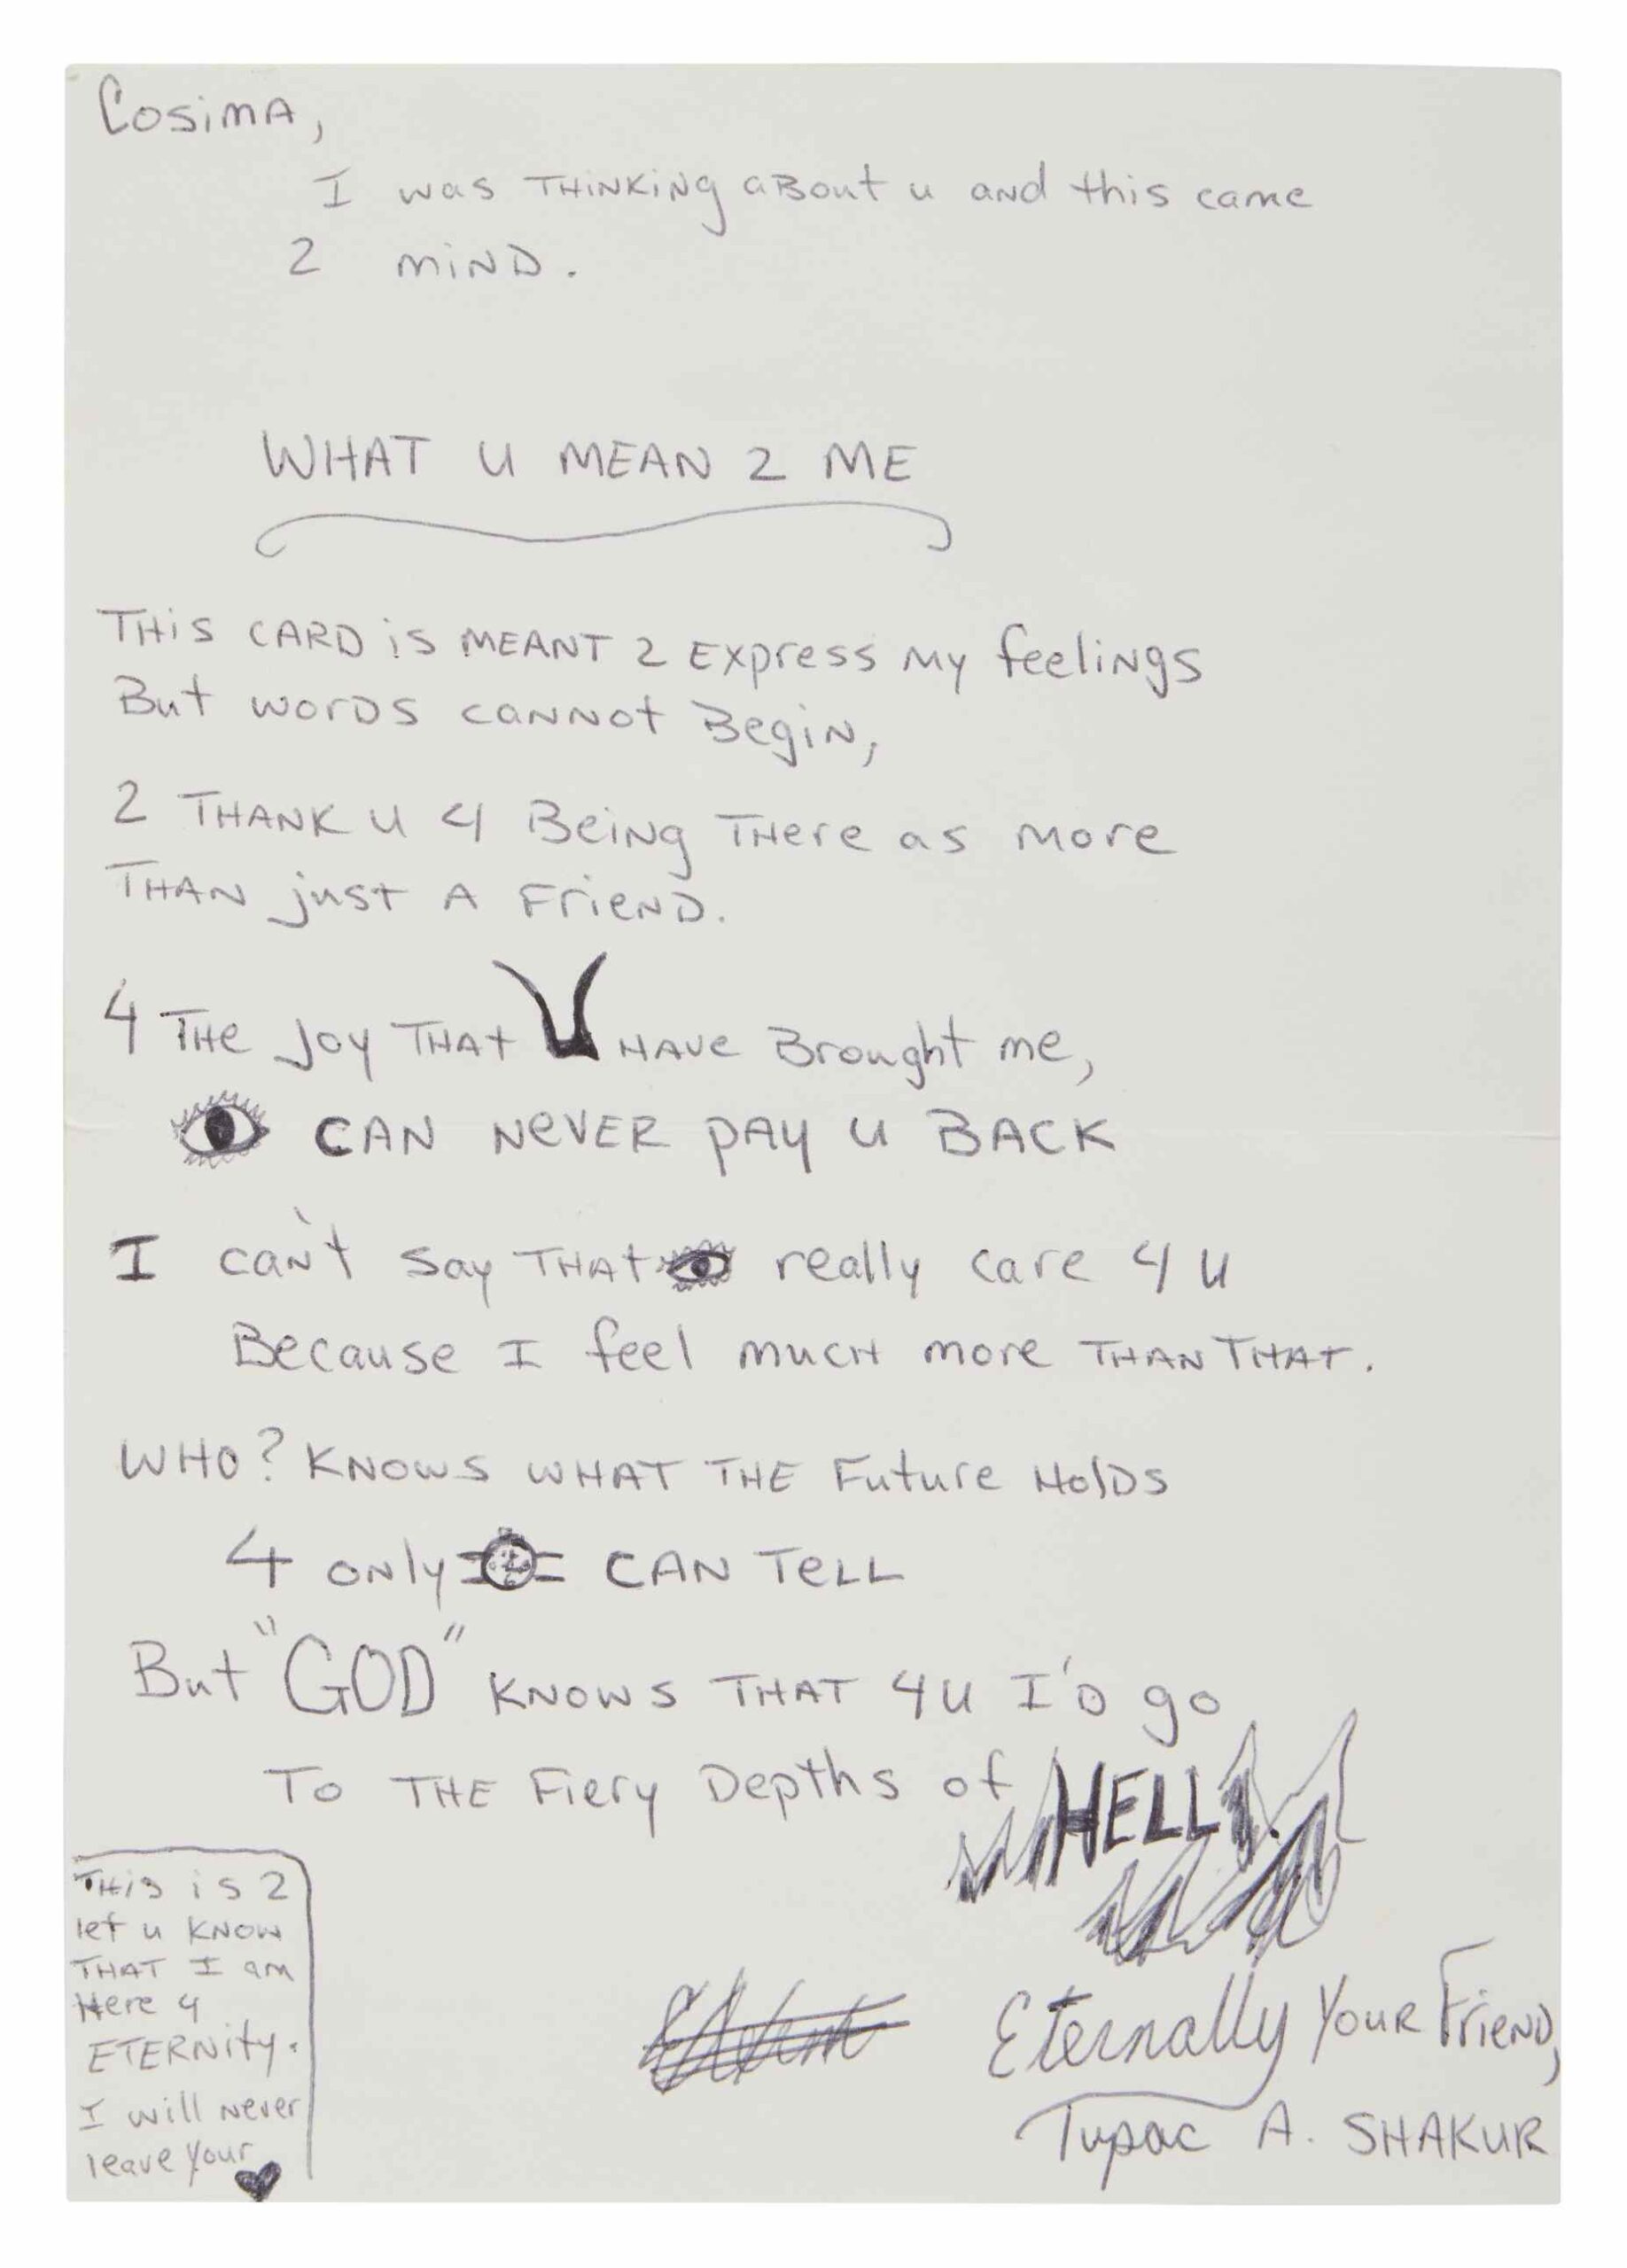 Cosima,
I was THiNKiNg aBout u aND this came
2 miND.
WHAT U MEAN 2 ME
THiS CARD iS MEANT 2 Express My feeliNgs
But worDS caNNot Begin,
2 THANK U 4 BeiNg THere as more
THAN just A FrieND.
4 THe Joy THAt U HAVe Brought me,
CAN NeVER PAY U BACK
I can't say THAt really care 4 U
Because I feel mucH more THAN THAT.
WHO? KNOWS WHAT THE Future HolDS
4 only CAN TeLL
But "GOD" KNOWS THAT 4U I'D go
To THE Fiery Depths of HELL!
THis is 2
let u KNOW
THAT I am
Here 4
ETERNity.
I will Never
leave Your
Eternally Your FrieND,
Tupac A. SHAKUR